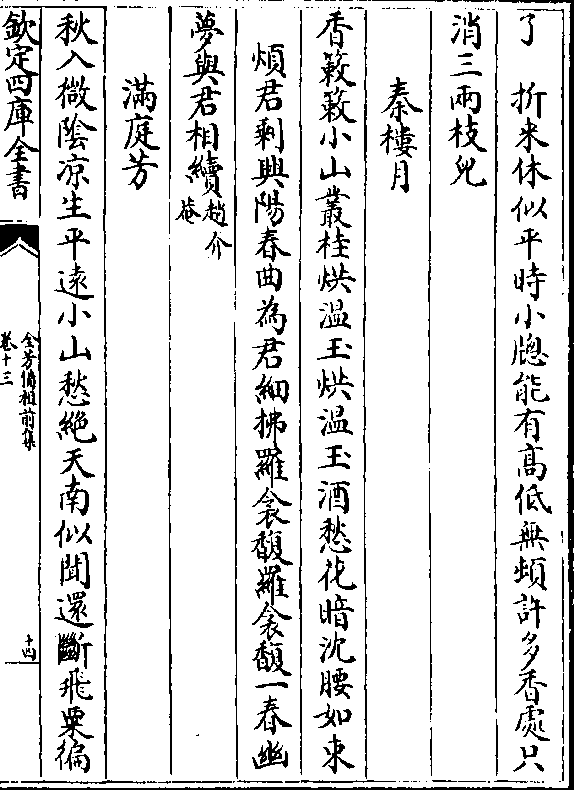 了　折來休似平時小牕能有高低無頓許多香處只
消三兩枝兒
秦樓月
香簌簌小山叢桂烘溫玉烘溫玉酒愁花暗沈腰如束
煩君剩與陽春曲為君細拂羅衾馥羅衾馥一春幽
夢與君相續趙介菴
滿庭芳
秋入微陰凉生平遠小山愁絶天南似聞還斷飛粟徧
欽定四庫全書
全芳備祖前集
卷十三
十四